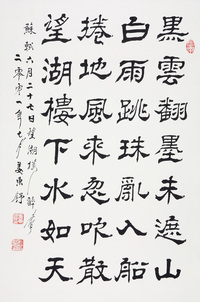 黑雲翻墨未遮山
白雨跳珠亂入船
捲地風來忽吹散
望湖樓下水如天
蘇軾六月二十七日望湖樓醉書
二零零一年七月姜東舒